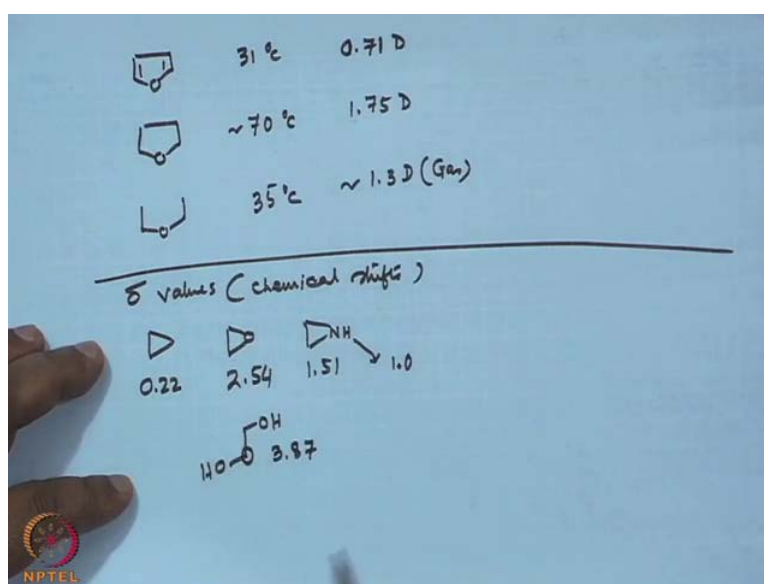 O 31 °C 0.71 D
O ~70 °C 1.75 D
O 35 °C ~ 1.3 D (Gas)
δ values (chemical shifts)
O NH
0.22 2.54 1.51 1.0
OH
HO 3.87
NPTEL